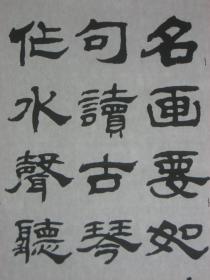 名画要如
句讀古琴
作水聲聽